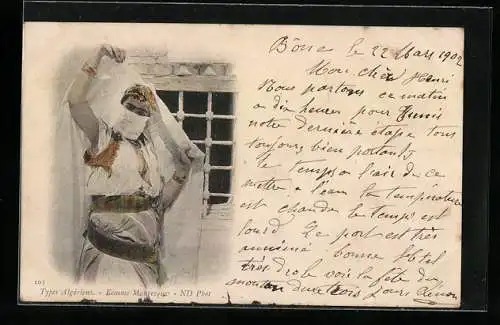 Bône le 22 Mars 1902
Mon cher Henri
Nous partons ce matin
a dix heures pour Tunis
notre dernière étape tous
toujours bien portants
le temps a l'air de ce
mettre a l'eau la température
est chaude le temps est
lourd Le port est très
animé bonne Hôtel
très drole voir la fête du
mouton dure trois jours
103
Types Algériens. - Femme Mauresque - ND Phot